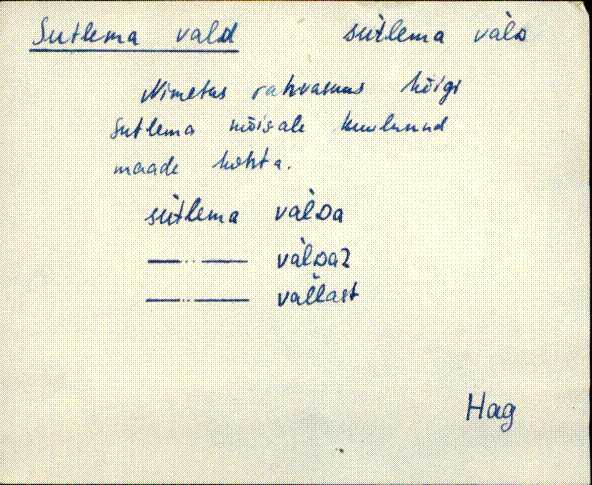 Sutlema vald    sùtlema vàlᴅ
Nimetus rahvasuus kõigi
Sutlema mõisale kuulunud
maade kohta.
sùtlema vàlᴅa
—··— vàlᴅaʔ
—··— vàllast
Hag